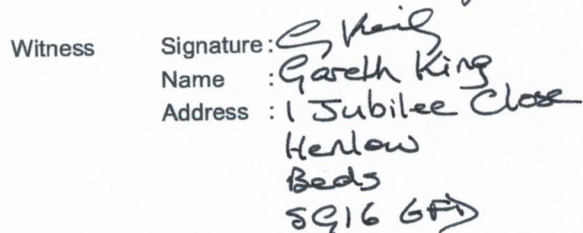 Witness Signature: G King
Name : Gareth King
Address : 1 Jubilee Close
Henlow
Beds
SG16